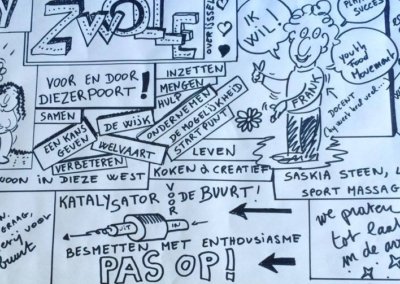 ZWOLLE
OVERIJSSEL
IK
WIL!
SUCCE
VOOR EN DOOR
DIEZERPOORT!
SAMEN
INZETTEN
MENGEN
HULP
ONDERNEMEN
DE MOGELIJKHEID
STARTPUNT
DE WIJK
EEN KANS
GEVEN
WELVAART
VERBETEREN
LEVEN
FRANK
YOUTH
FOOD
MOVEMENT
DOCENT
WOON IN DIEZE WEST
KOKEN & CREATIEF
SASKIA STEEN, L
SPORT MASSAG
KATALYSATOR
VOOR
DE BUURT!
IN
BESMETTEN MET ENTHOUSIASME
PAS OP!
voor
buurt
we praten
tot laat
in de av